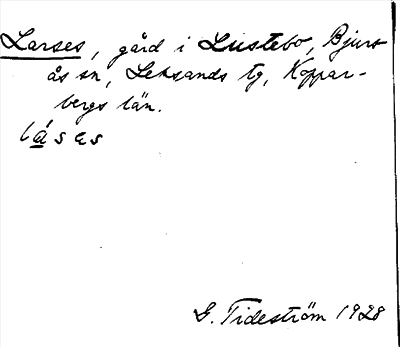 Larses, gård i Lustebo, Bjurs-
ås sn, Leksands tg, Koppar-
bergs län.
lásas
G. Tideström 1928